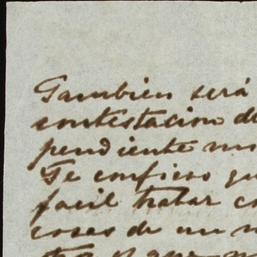 Tambien será
contestacion de
pendiente
Te confieso
facil tratar
cosas de un